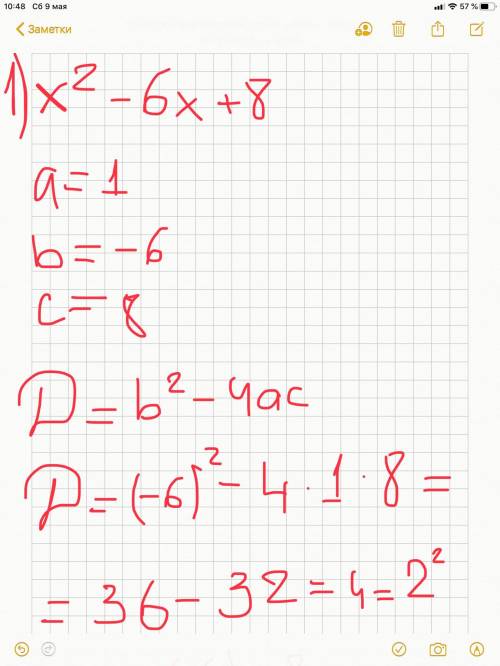 10:48 Сб 9 мая 57 %
Заметки
1) x² - 6x + 8
a = 1
b = -6
c = 8
D = b² - 4ac
D = (-6)² - 4 · 1 · 8 =
= 36 - 32 = 4 = 2²